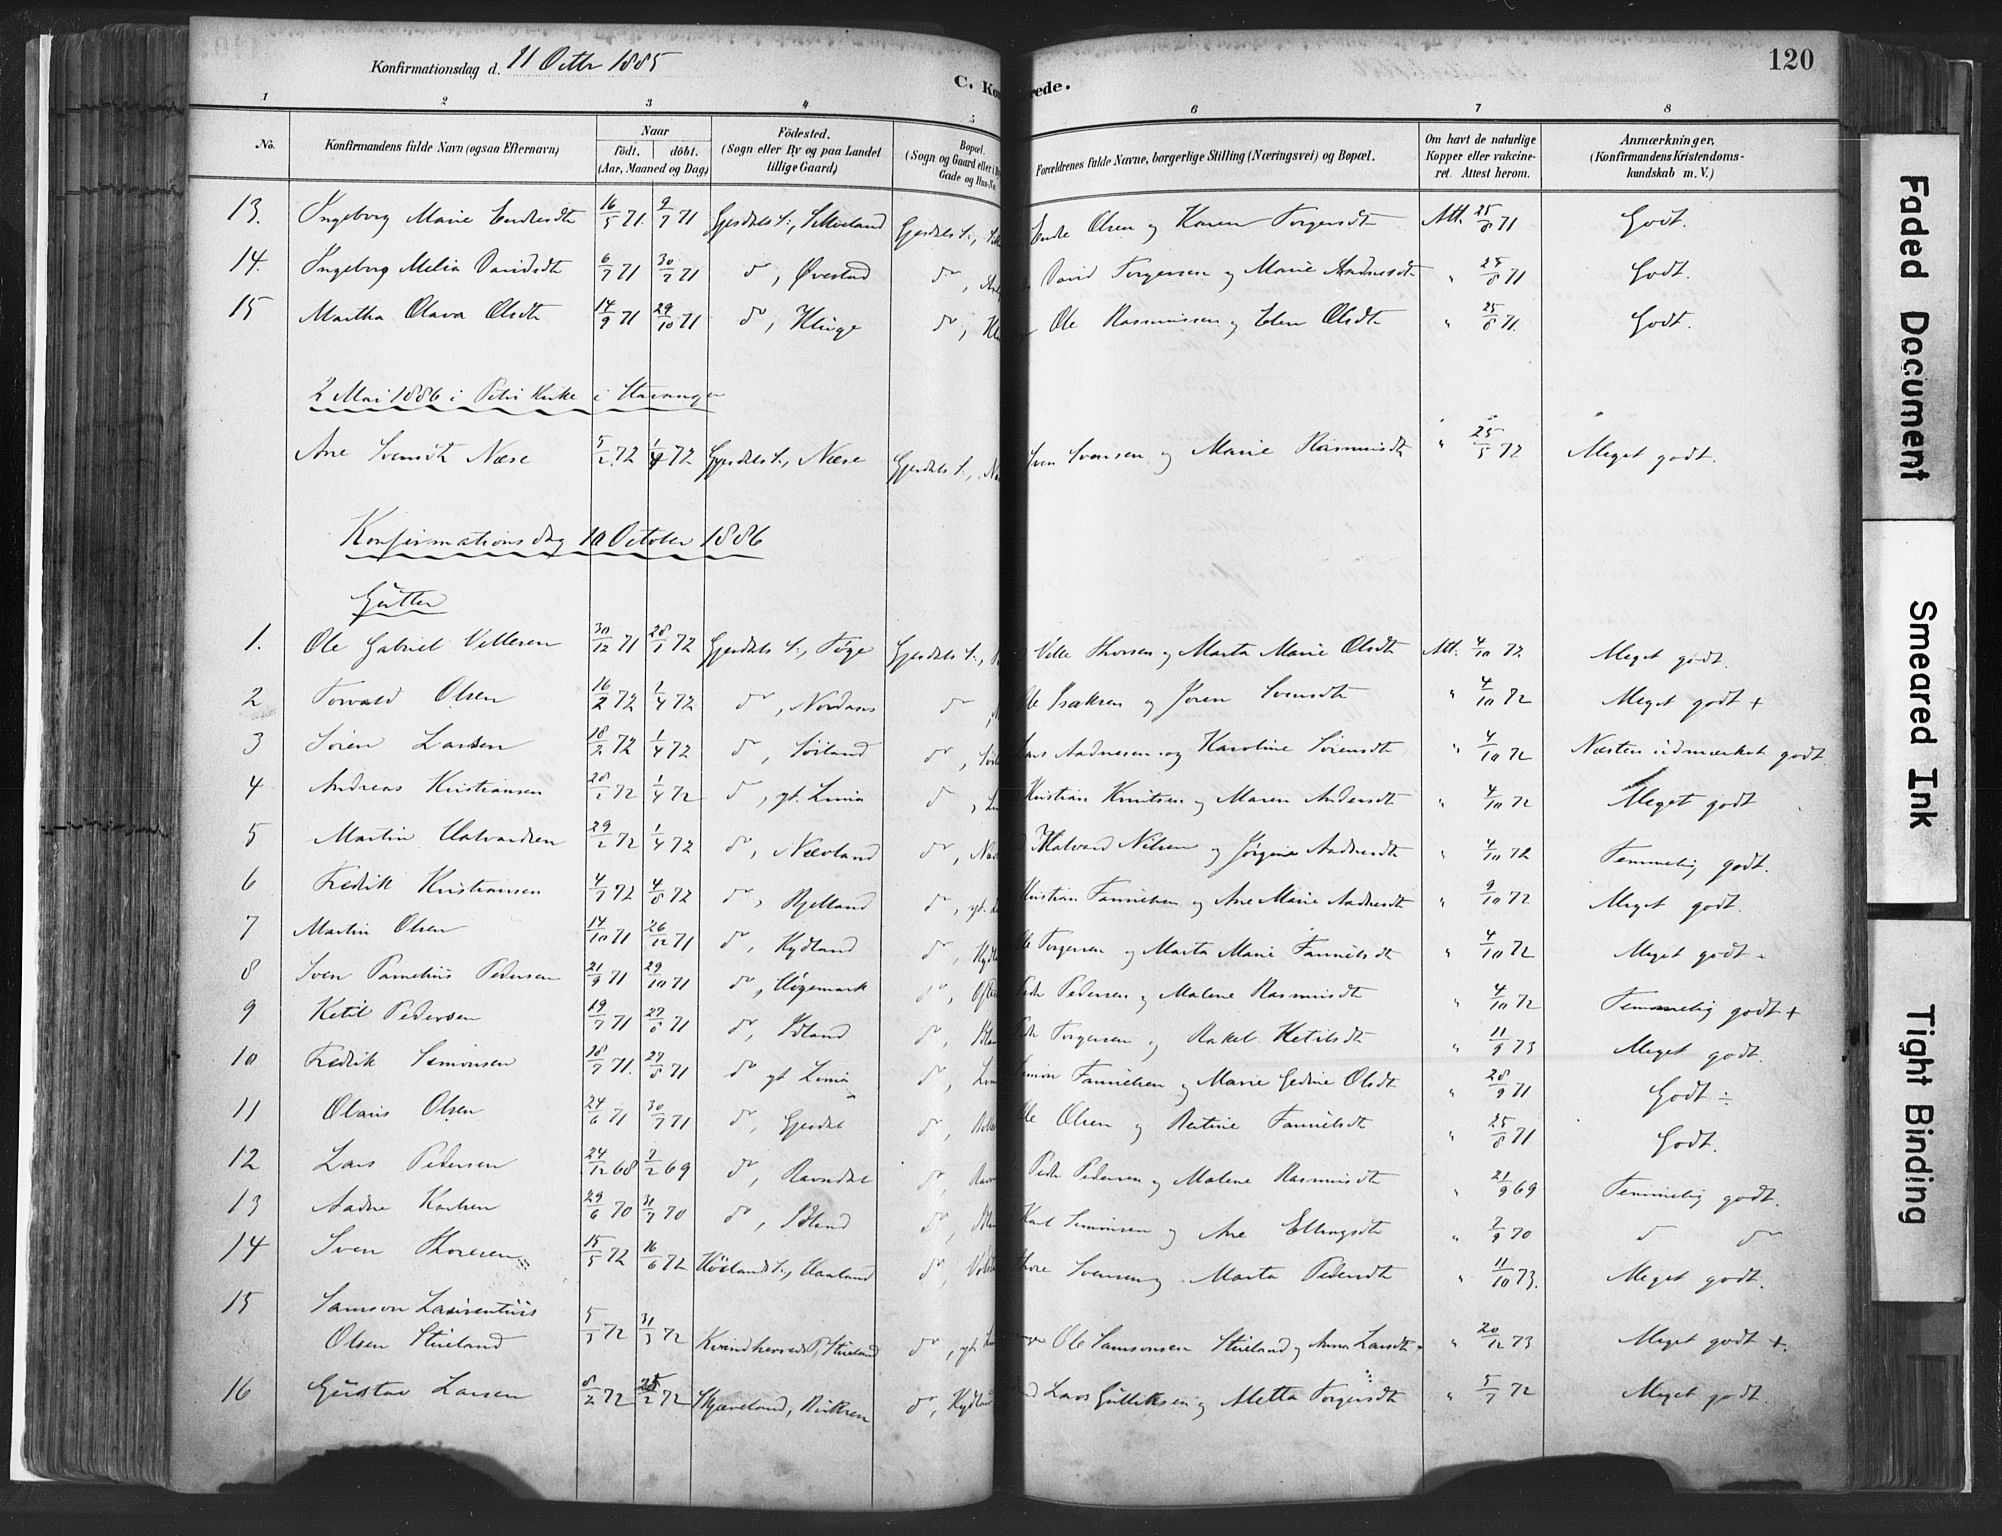 Konfirmationsdag d. 11 Octbr 1885
120
C. Kon rede.
1 2 3 4 5 6 7 8
No. Konfirmandens fulde Navn (ogsaa Efternavn) Naar födt. döbt. (Aar, Maaned og Dag) Födested. (Sogn eller By og paa Landet tillige Gaard) Bopæl. (Sogn og Gaard eller By Gade og Hus-No. Forældrenes fulde Navne, borgerlige Stilling (Næringsvei) og Bopæl. Om havt de naturlige Kopper eller vakcineret. Attest herom. Anmærkninger. (Konfirmandens Kristendomskundskab m. V.)
13. Ingeborg Marie Endresdt 16/5 71 9/7 71 Gjesdals S:, Gjesdals S:, Endre Olsen og Karen Torgersdt Att. 25/8 71 Godt.
14. Ingeborg Melia Davidsdt 6/7 71 30/7 71 do, Øvestad do, David Torgersen og Marie Aadnesdt " 25/8 71 Godt.
15 Martha Olava Olsdt 14/9 71 29/10 71 do, Kluge do, Kl Ole Rasmussen og Elen Olsdt " 25/8 71. Godt.
2 Mai 1886 i Petri Kirke i Stavanger
Ane Svensdt Næse 5/2 72 1/4 72 Gjesdals S:, Næse Gjesdals S:, N Sven Svensen og Marie Rasmusdt " 25/5 72 Meget godt.
Konfirmationsdag 10 October 1886
Gutter
1. Ole Gabriel Vellesen 30/12 71 28/1 72 Gjesdals S:, Gjesdals S:, Velle Thorsen og Marta Marie Olsdt Att. 4/10 72 Meget godt.
2 Torvald Olsen 16/2 72 1/4 72 do, Nordaas do, Ole Isaksen og Joren Svensdt " 4/10 72 Meget godt +
3 Sören Larsen 18/2 72 1/4 72 do, Söiland do, Söil Lars Aadnesen og Karoline Sörensdt " 4/10 72 Næsten udmærket godt.
4 Andreas Kristiansen 28/1 72 1/4 72 do, yt. Lima do, Li Kristian Knutsen og Maren Andersdt " 4/10 72 Meget godt
5 Martin Halvardsen 29/1 72 1/4 72 do, Nævland do, Næv Halvard Nilsen og Jörgine Aadnesdt " 4/10 72 Temmelig godt.
6 Fredrik Kristiansen 4/7 72 4/8 72 do, Kjelland do, yt. L Kristian Tønnesen og Ane Marie Aadnesdt " 9/10 72 Meget godt.
7 Martin Olsen 14/10 71 26/12 71 do, Kydland do, Kydl Ole Torgersen og Marta Marie " 4/10 72 Meget godt -
8 Sven Pedersen 21/9 71 29/10 71 do, Högemork do, Peder Pedersen og Malene Rasmusdt " 4/10 72 Temmelig godt +
9 Ketil Pedersen 19/7 71 27/8 71 do, Idland do, Idlan Peder Torgersen og Rakel Ketilsdt " 11/9 73 Meget godt.
10 Fredrik Simonsen 18/7 71. 27/8 71 do yt Lima do, Lim Simon og Marie Gedine Olsdt " 28/9 71 Godt ÷
11 Olaus Olsen 24/6 71 30/7 71 do, Gjesdal do, Ole Olsen og " 25/8 71 Godt.
12 Lars Pedersen 24/12 68 7/2 69 do, Ravndal do, Ravn Peder Pedersen og Malene Rasmusdt " 21/9 69 Temmelig godt.
13 Aadne Karlsen 29/6 70 31/7 70 do, Idland do, Idlan Karl Simonsen og Ane Ellingsdt " 7/9 70 do do
14 Sven Thoresen 15/5 72 16/6 72 Höilands S:, Haaland do, Thore Svensen og Marta Pedersdt " 11/10 73. Meget godt.
15 Samson Laurentius
Olsen Stueland 5/3 72 31/3 72 Kvindherreds P., Stueland do, yt. L Ole Samsonsen Stueland og Anna Larsdt " 20/12 73 Meget godt +.
16 Gustav Larsen 8/2 72 25/2 72 Skjæveland, do, Kydland Lars Gulliksen og Metta Torgersdt " 5/7 72 Meget godt.
Faded Document
Smeared Ink
Tight Binding